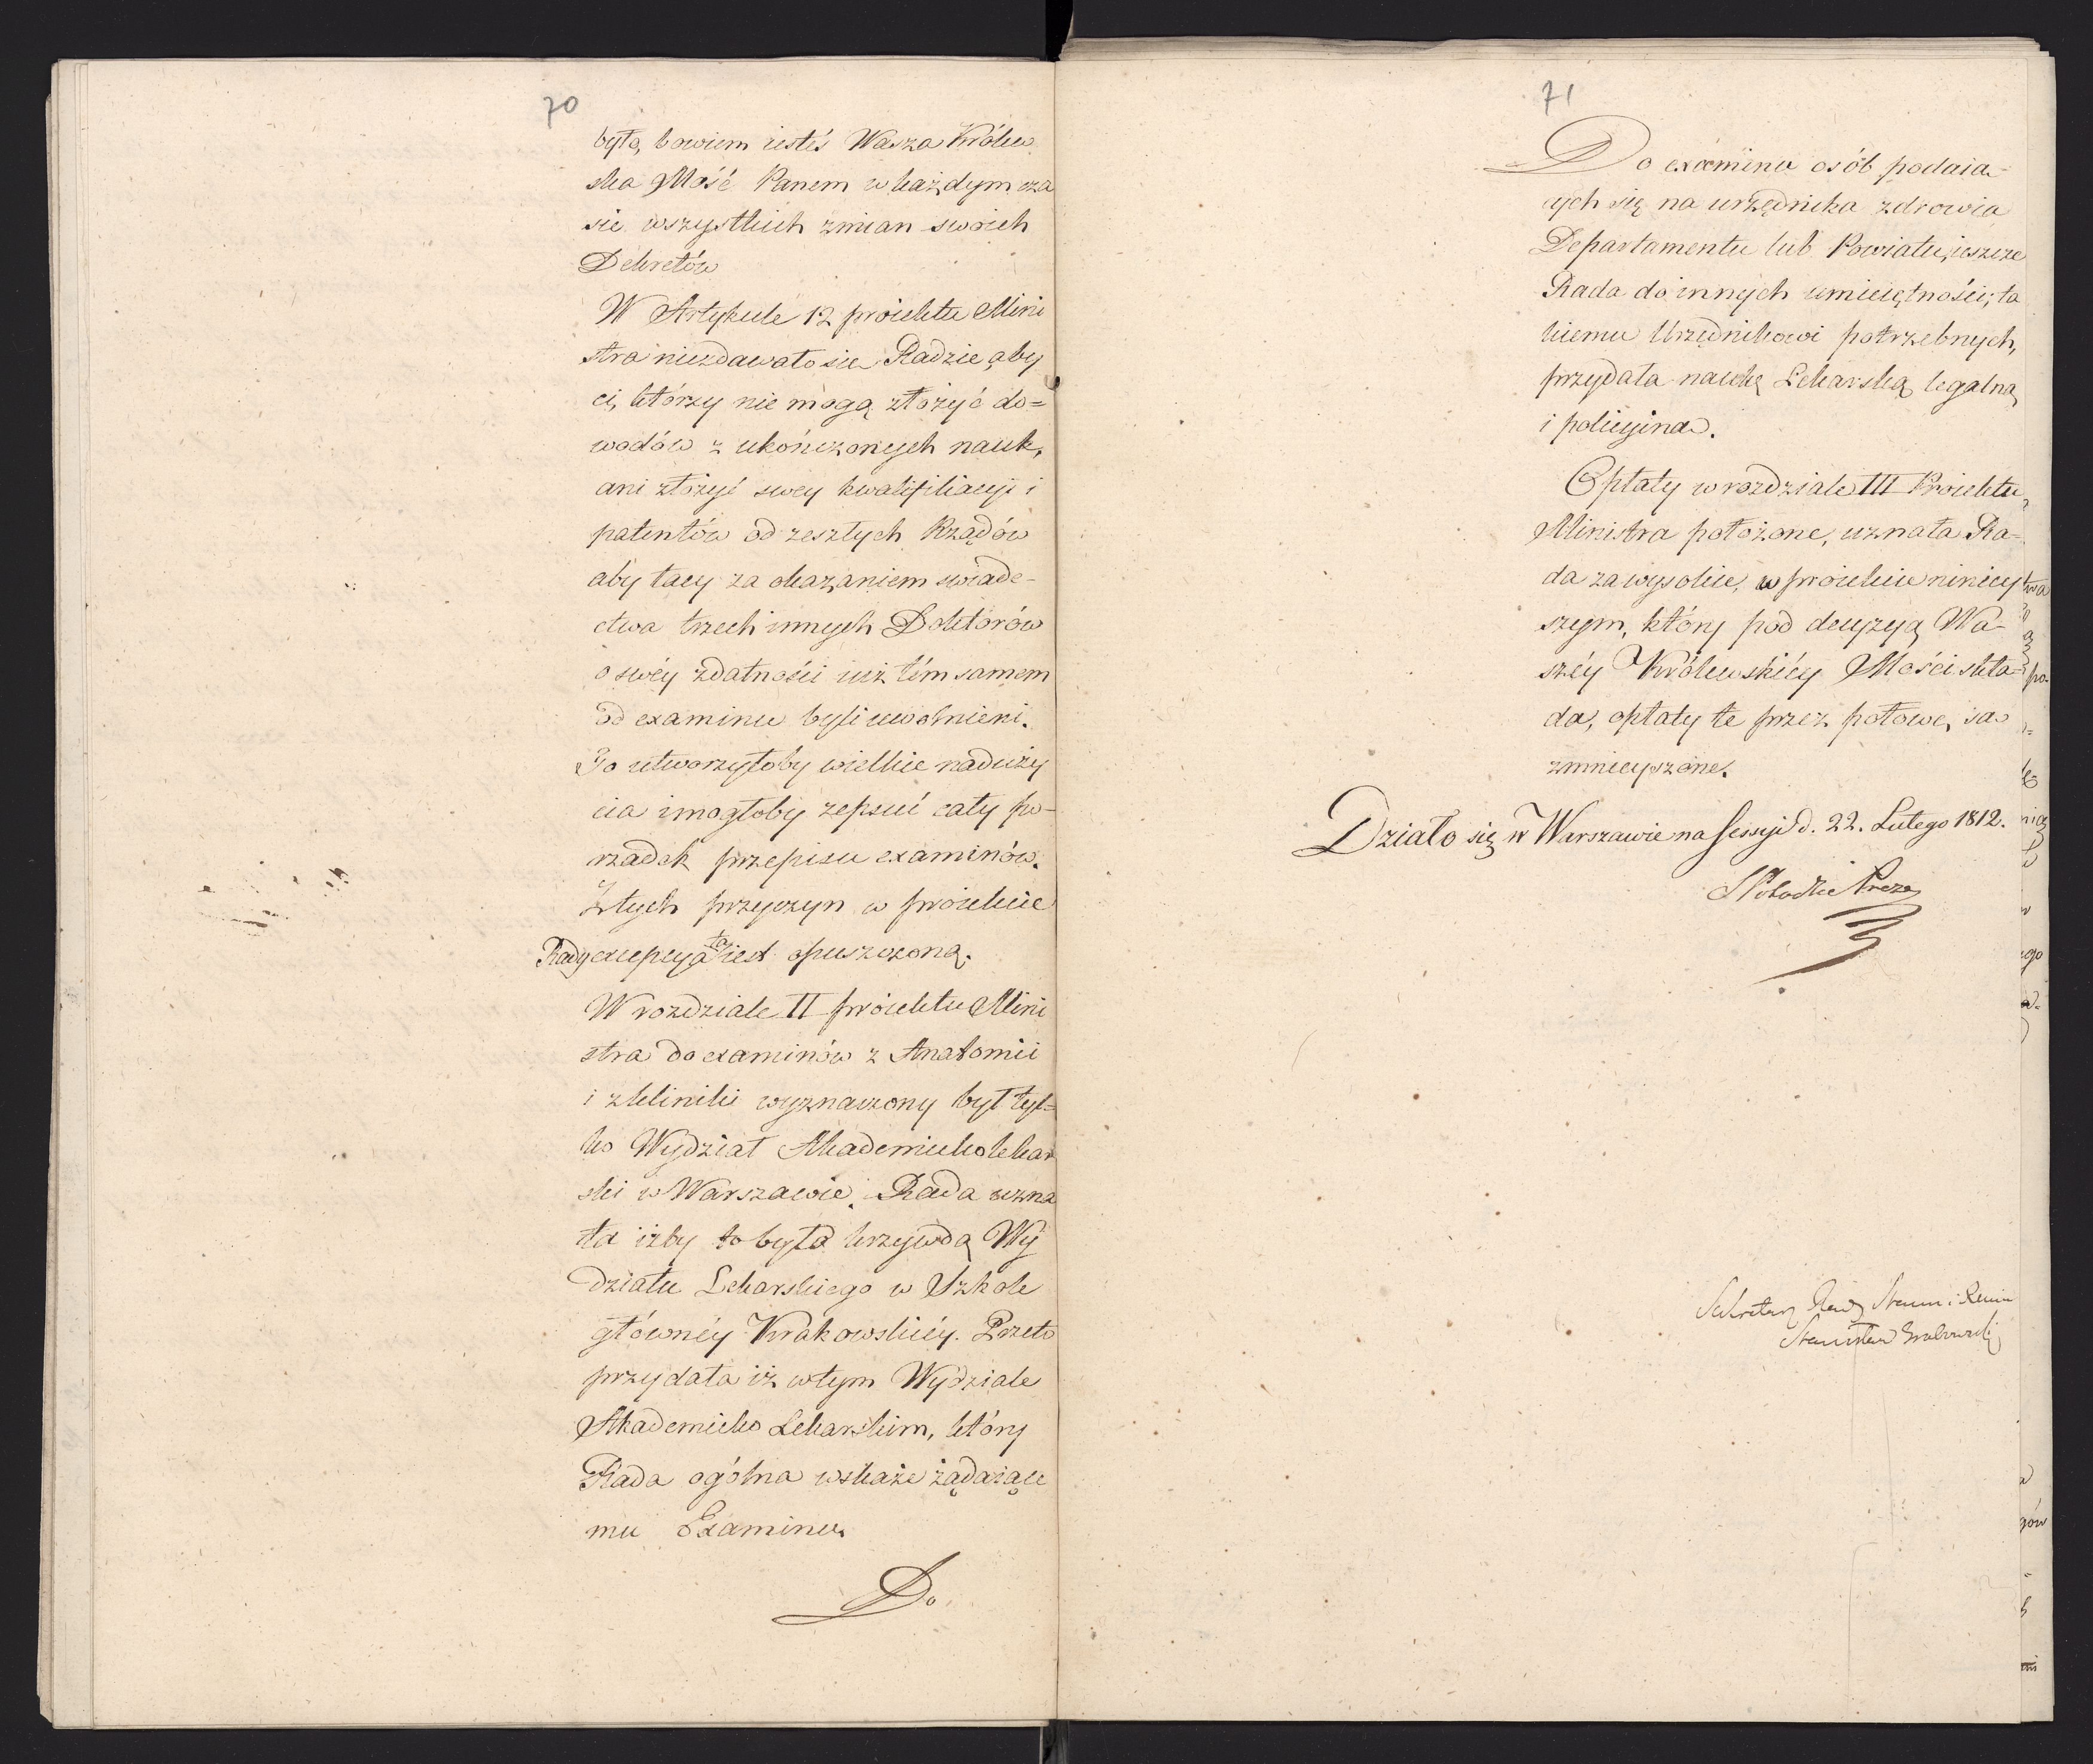 70
była, bowiem iesteś Wasza Królew
ska Mość Panem w każdym cza
sie wszystkich zmian swoich
Dekretów
W Artykule 12 proiektu Mini
stra niezdawało sie Radzie, aby
ci, którzy nie mogą złożyć do=
wodów z ukończonych nauk,
ani złożyć swey kwalifikacyi i
patentów od zeszłych Rządów
aby tacy za okazaniem swiade-
ctwa trzech innych Doktorów
o swéy zdatności iuż tém samem
od examinu byli uwolnieni.
To utworzyłoby wielkie naduży
cia i mogłoby zepsuć cały po-
rzadek przepisu examinów.
Z tych przyczyn w proiekcie
Rady excepcya ta iest opuszczoną.
W rozdziale II proiektu Mini
stra do examinów z Anatomii
i z kliniki wyznaczony był tyl=
ko Wydział Akademicko lekar
ski w Warszawie. Rada uzna
ła iżby to było krzywdą Wy
działu Lekarskiego w Szkole
głównéy Krakowskiéy. Przeto
przydała iż w tym Wydziale
Akademicko Lekarskim, który
Rada ogólna wskaże żądaiące
mu Examinu.
Do
71
Do examinu osób podaia-
cych się na urzędnika zdrowia
Departamentu lub Powiatu, ieszcze
Rada do innych umieiętności, ta
kiemu Urzędnikowi potrzebnych,
przydała naukę Lekarską legalną
i policyina.
Opłaty w rozdziale III Proiektu
Ministra położone, uznała Ra-
da za wysokie, w proiekcie niniey
szym, który pod decyzyą Wa-
széy Królewskiéy Mości skła-
da, opłaty te przez połowę są
zmnieyszone.
Działo się w Warszawie na Sessyi d. 22. Lutego 1812.
S Potocki Prezes
Sekretarz Rady Stanu i
Stanisław Grabowski